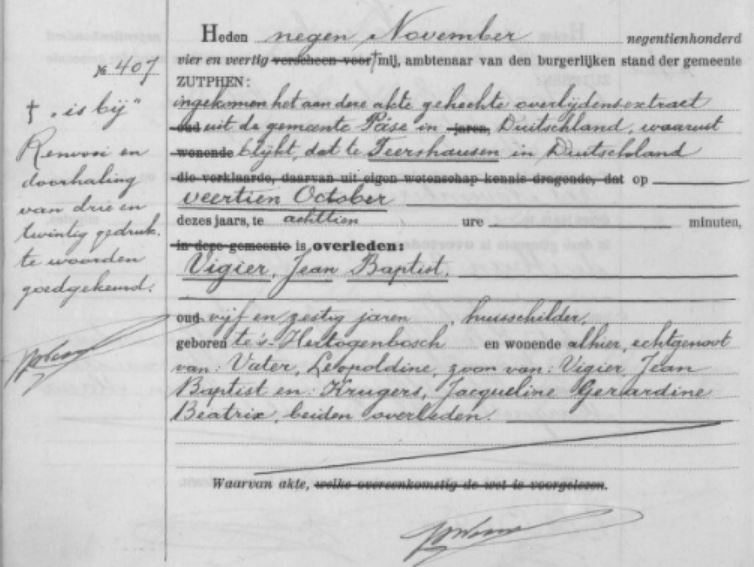 Heden negen November negentienhonderd
№ 407
vier en veertig verscheen voor † mij, ambtenaar van den burgerlijken stand der gemeente
ZUTPHEN:
† „is bij"
Renvooi en
doorhaling
van drie en
twintig gedruk-
te woorden
goedgekeurd.
ingekomen het aan deze akte gehechte overlijdensextract
oud uit de gemeente Päse in jaren, Duitschland, waaruit
wonende blijkt, dat te Teershausen in Duitschland
die verklaarde, daarvan uit eigen wetenschap kennis dragende, dat op
veertien October
dezes jaars, te achttien ure minuten,
in deze gemeente is overleden:
Vigier, Jean Baptist,
oud vijf en zestig jaren, huisschilder,
geboren te 's-Hertogenbosch en wonende alhier, echtgenoot
van: Vater, Leopoldine, zoon van: Vigier, Jean
Baptist en: Krugers, Jacqueline Gerardine
Beatrix, beiden overleden.
Waarvan akte, welke overeenkomstig de wet is voorgelezen.